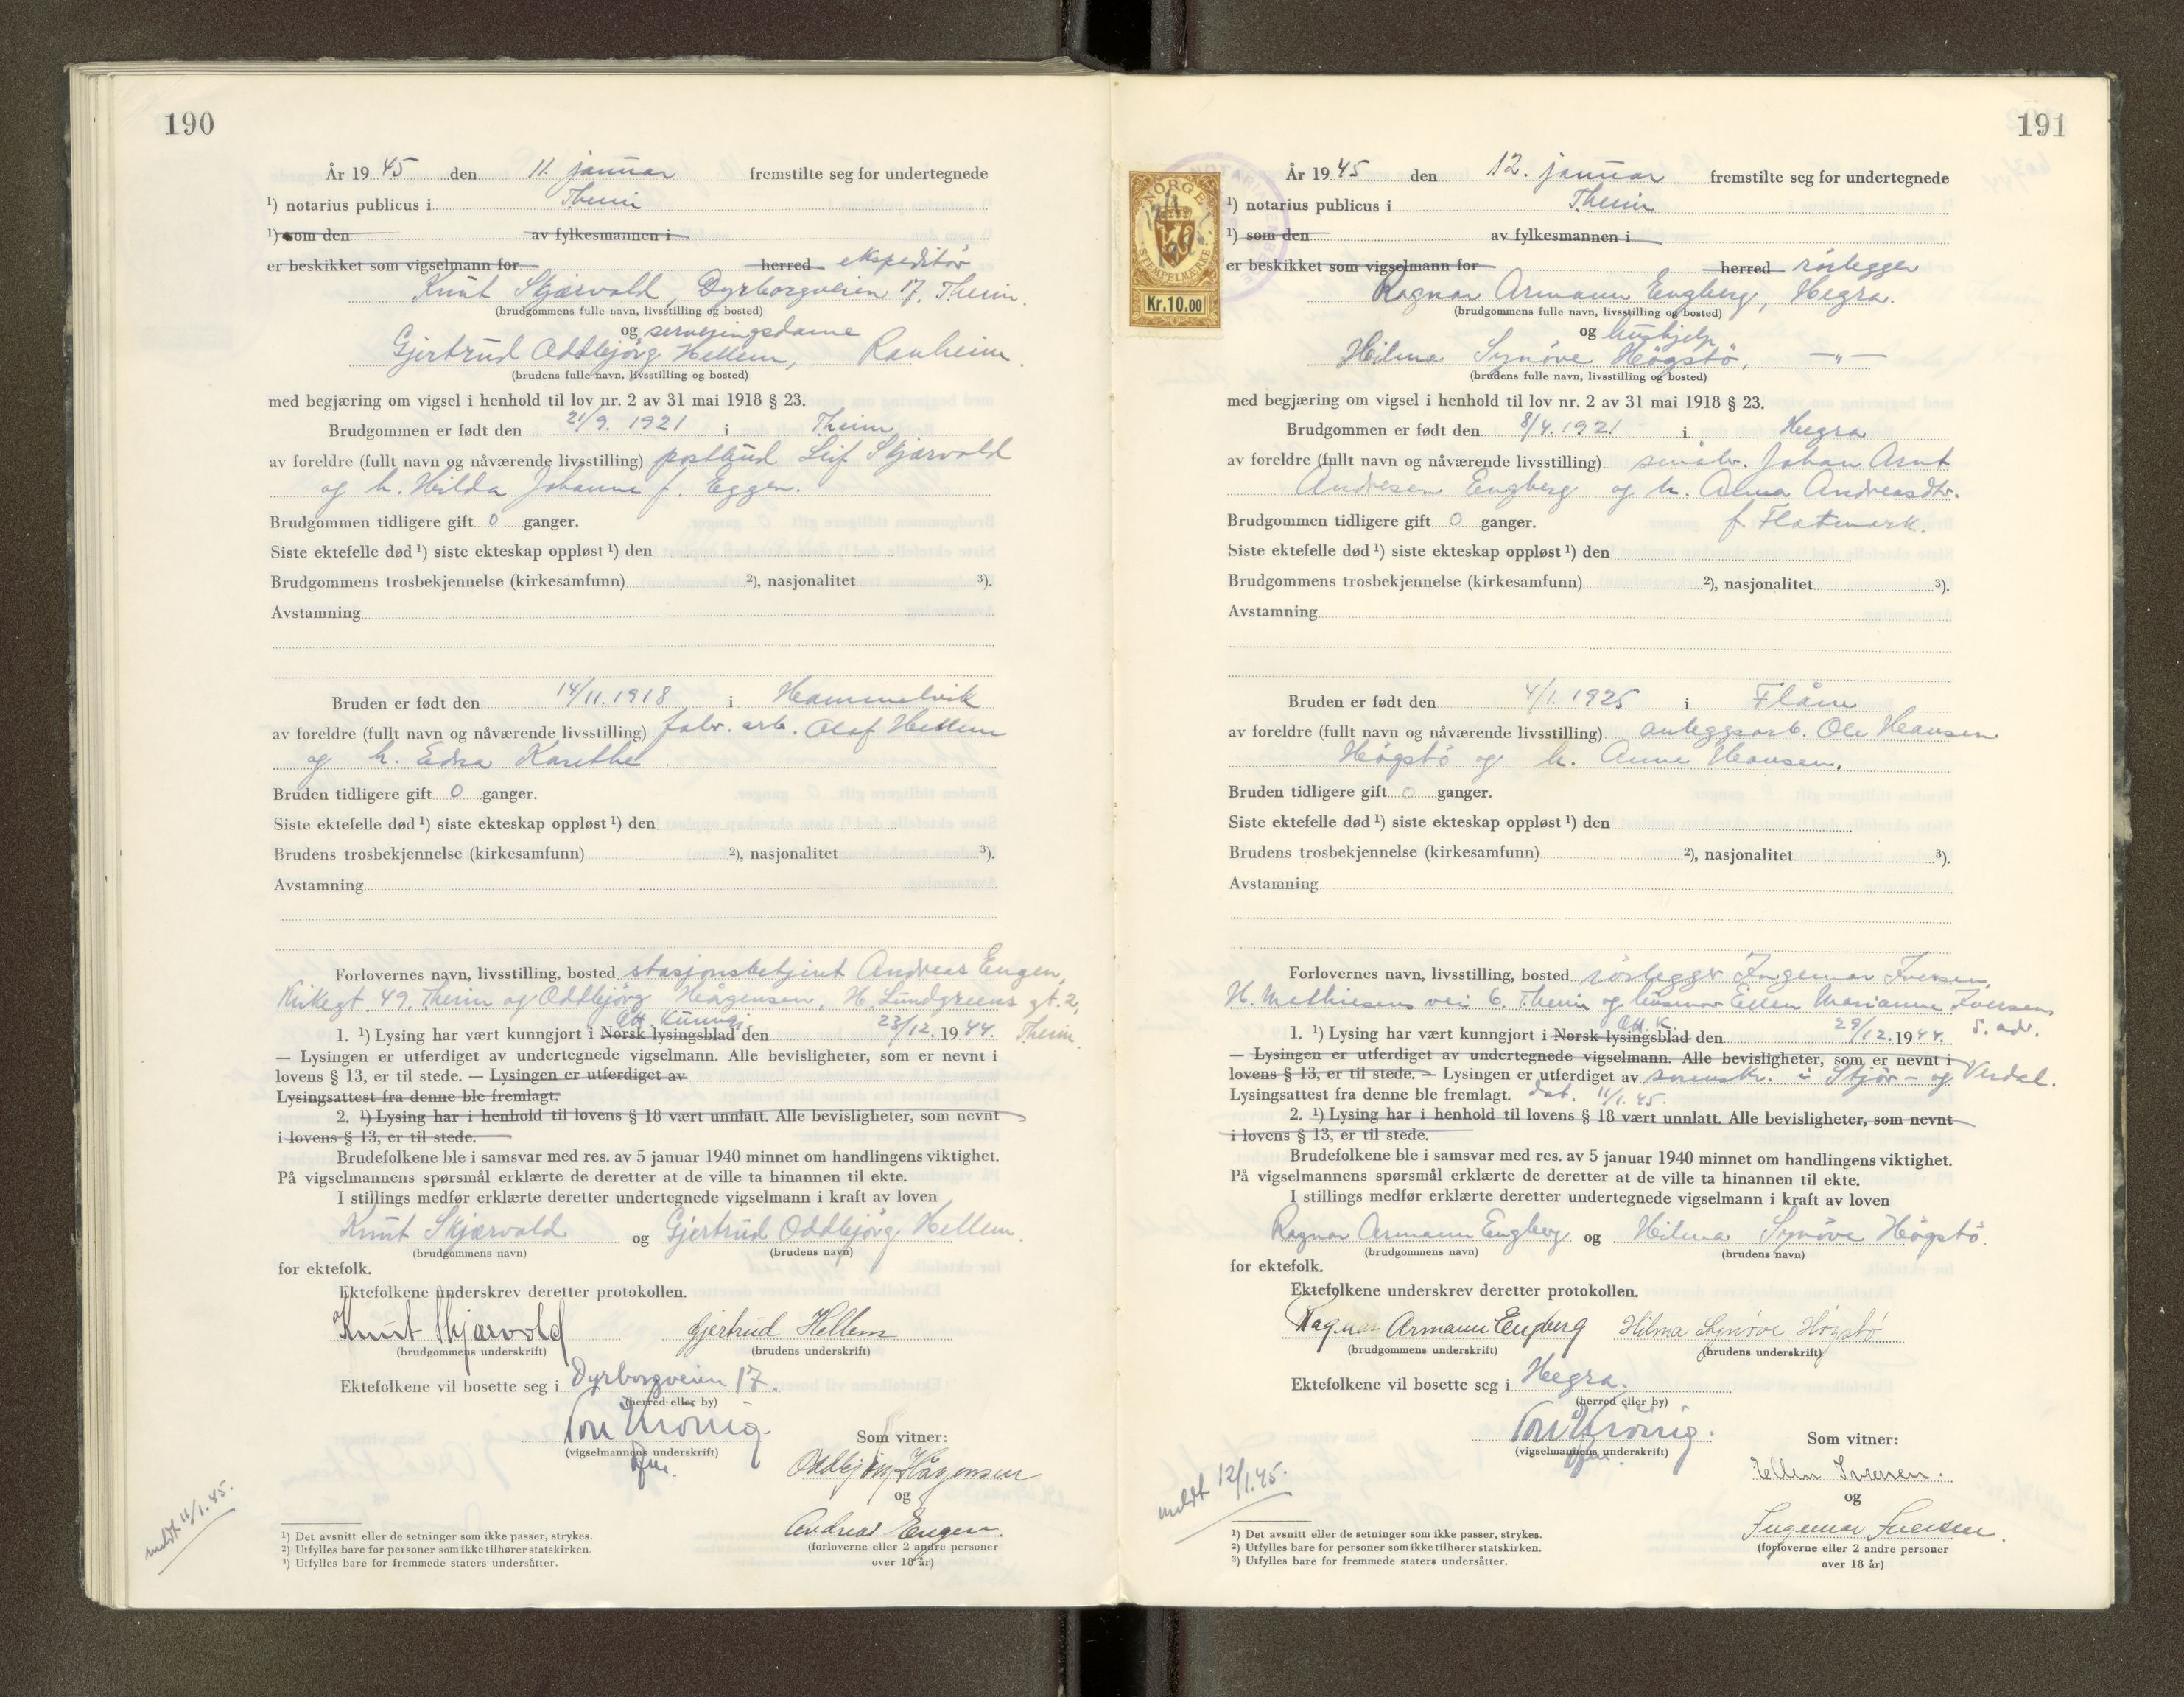 190
År 1945 den 11. januar fremstilte seg for undertegnede
¹) notarius publicus i Theim
¹) som den av fylkesmannen i
er beskikket som vigselmann for herred ekspeditör
Knut Skjærvold, Dyrborgveien 17, Theim.
(brudgommens fulle navn, livsstilling og bosted)
og serveringsdame
Gjertrud Oddbjörg Hellem, Ranheim.
(brudens fulle navn, livsstilling og bosted)
med begjæring om vigsel i henhold til lov nr. 2 av 31 mai 1918 § 23.
Brudgommen er født den 21/9. 1921 i Theim
av foreldre (fullt navn og nåværende livsstilling) postbud Leif Skjærvold
og h. Hilda Johanne f. Eggen.
Brudgommen tidligere gift 0 ganger.
Siste ektefelle død ¹) siste ekteskap oppløst ¹) den
Brudgommens trosbekjennelse (kirkesamfunn) ²), nasjonalitet ³).
Avstamning
Bruden er født den 14/11. 1918 i Hammelvik
av foreldre (fullt navn og nåværende livsstilling) fabr. arb. Olaf Hellem
og h. Edna Karethe
Bruden tidligere gift 0 ganger.
Siste ektefelle død ¹) siste ekteskap oppløst ¹) den
Brudens trosbekjennelse (kirkesamfunn) ²), nasjonalitet ³).
Avstamning
Forlovernes navn, livsstilling, bosted stasjonsbetjent Andreas Engen,
Kirkegt. 49. Theim og Oddbjörg Hågensen, H. Lundgreens gt. 2,
Off. kunngj.
1. ¹) Lysing har vært kunngjort i Norsk lysingsblad den 23/12. 1944. Theim.
— Lysingen er utferdiget av undertegnede vigselmann. Alle bevisligheter, som er nevnt i
lovens § 13, er til stede. — Lysingen er utferdiget av
Lysingsattest fra denne ble fremlagt.
2. ¹) Lysing har i henhold til lovens § 18 vært unnlatt. Alle bevisligheter, som nevnt
i lovens § 13, er til stede.
Brudefolkene ble i samsvar med res. av 5 januar 1940 minnet om handlingens viktighet.
På vigselmannens spørsmål erklærte de deretter at de ville ta hinannen til ekte.
I stillings medfør erklærte deretter undertegnede vigselmann i kraft av loven
Knut Skjærvold og Gjertrud Oddbjörg Hellem.
(brudgommens navn) (brudens navn)
for ektefolk.
Ektefolkene underskrev deretter protokollen.
Knut Skjærvold Gjertrud Hellem
(brudgommens underskrift) (brudens underskrift)
Ektefolkene vil bosette seg i Dyrborgveien 17.
(herred eller by)
(vigselmannens underskrift)
Som vitner:
Oddbjörg Hågensen
og
Andreas Engen.
(forloverne eller 2 andre personer
over 18 år)
meldt 11/1.45.
¹) Det avsnitt eller de setninger som ikke passer, strykes.
²) Utfylles bare for personer som ikke tilhører statskirken.
³) Utfylles bare for fremmede staters undersåtter.
191
NORGE
STEMPELMERKE
Kr.10.00
År 1945 den 12. januar fremstilte seg for undertegnede
¹) notarius publicus i Theim
¹) som den av fylkesmannen i
er beskikket som vigselmann for herred rörlegger
Ragnar Armann Engberg, Hegra.
(brudgommens fulle navn, livsstilling og bosted)
og hushjelp
Hilma Synöve Högstö, —"—
(brudens fulle navn, livsstilling og bosted)
med begjæring om vigsel i henhold til lov nr. 2 av 31 mai 1918 § 23.
Brudgommen er født den 8/4. 1921 i Hegra
av foreldre (fullt navn og nåværende livsstilling) småbr. Johan Arnt
Andresen Engberg og h. Alma Andreasdtr.
Brudgommen tidligere gift 0 ganger. f. Flatmark.
Siste ektefelle død ¹) siste ekteskap oppløst ¹) den
Brudgommens trosbekjennelse (kirkesamfunn) ²), nasjonalitet ³).
Avstamning
Bruden er født den 4/1. 1925 i Flåm
av foreldre (fullt navn og nåværende livsstilling) anleggsarb. Ole Hansen
Högstö og h. Anne Hansen.
Bruden tidligere gift 0 ganger.
Siste ektefelle død ¹) siste ekteskap oppløst ¹) den
Brudens trosbekjennelse (kirkesamfunn) ²), nasjonalitet ³).
Avstamning
Forlovernes navn, livsstilling, bosted rörlegger Ingemar Iversen,
H. Mathiesens vei 6. Theim og husmor Ellen Marianne Iversen
Off. K. s. adr.
1. ¹) Lysing har vært kunngjort i Norsk lysingsblad den 29/12. 1944.
— Lysingen er utferdiget av undertegnede vigselmann. Alle bevisligheter, som er nevnt i
lovens § 13, er til stede. — Lysingen er utferdiget av sorenskr. i Stjör- og Verdal.
Lysingsattest fra denne ble fremlagt. dat. 11/1. 45.
2. ¹) Lysing har i henhold til lovens § 18 vært unnlatt. Alle bevisligheter, som nevnt
i lovens § 13, er til stede.
Brudefolkene ble i samsvar med res. av 5 januar 1940 minnet om handlingens viktighet.
På vigselmannens spørsmål erklærte de deretter at de ville ta hinannen til ekte.
I stillings medfør erklærte deretter undertegnede vigselmann i kraft av loven
Ragnar Armann Engberg og Hilma Synöve Högstö.
(brudgommens navn) (brudens navn)
for ektefolk.
Ektefolkene underskrev deretter protokollen.
Ragnar Armann Engberg Hilma Synöve Högstö
(brudgommens underskrift) (brudens underskrift)
Ektefolkene vil bosette seg i Hegra.
(herred eller by)
(vigselmannens underskrift)
Som vitner:
Ellen Iversen.
og
Ingemar Iversen.
(forloverne eller 2 andre personer
over 18 år)
meldt 12/1.45.
¹) Det avsnitt eller de setninger som ikke passer, strykes.
²) Utfylles bare for personer som ikke tilhører statskirken.
³) Utfylles bare for fremmede staters undersåtter.